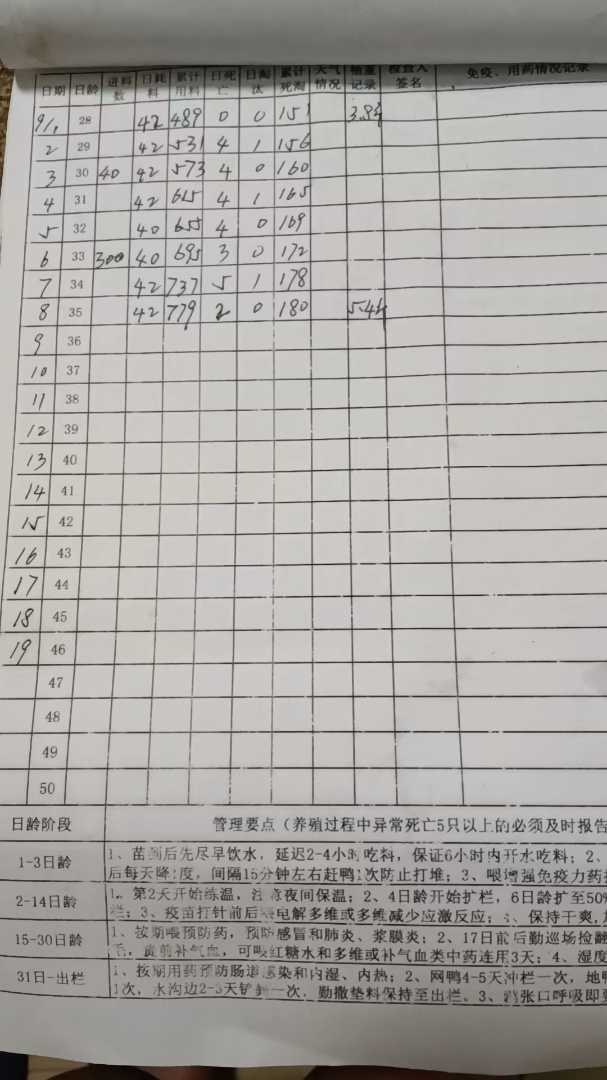 日期 日龄 进料数 日耗料 累计用料 日死亡 日淘汰 累计死淘 天气情况 记录 检查人签名 免疫、用药情况记录
9/1 28 42 489 0 0 151 3.84
2 29 42 531 4 1 156
3 30 40 42 573 4 0 160
4 31 42 615 4 1 165
5 32 40 655 4 0 169
6 33 300 40 695 3 0 172
7 34 42 737 5 1 178
8 35 42 779 2 0 180 5.44
9 36
10 37
11 38
12 39
13 40
14 41
15 42
16 43
17 44
18 45
19 46
47
48
49
50
日龄阶段 管理要点（养殖过程中异常死亡5只以上的必须及时报告
1-3日龄 1、苗到后先尽早饮水，延迟2-4小时吃料，保证6小时内开水吃料；2、
后每天降1度，间隔15分钟左右赶鸭1次防止打堆；3、喂增强免疫力药
2-14日龄 1、第2天开始练温，注意夜间保温；2、4日龄开始扩栏，6日龄扩至50%
栏；3、疫苗打针前后喂电解多维或多维减少应激反应；4、保持干爽，
15-30日龄 1、按期喂预防药，预防感冒和肺炎、浆膜炎；2、17日前后勤巡场捡翻
毛，黄前补气血，可喂红糖水和多维或补气血类中药连用3天；4、湿度
31日-出栏 1、按期用药预防肠道感染和内湿、内热；2、网鸭4-5天冲栏一次，地鸭
1次，水沟边2-3天铲一次，勤撒垫料保持至出栏。3、张口呼吸即